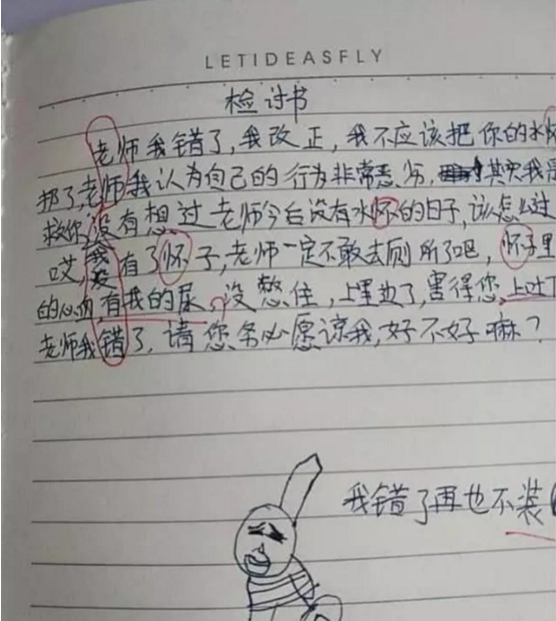 LETIDEASFLY
检讨书
老师我错了,我改正,我不应该把你的水
扔了,老师我认为自己的行为非常恶劣,其实我
没有想过老师今后没有水怀的日子,该怎么过
哎,有了怀子,老师一定不敢去厕所了吧,怀子里
的有我的尿,没憋住,上里边了,害得您上吐
老师我错了,请您务必愿谅我,好不好嘛?
我错了再也不装